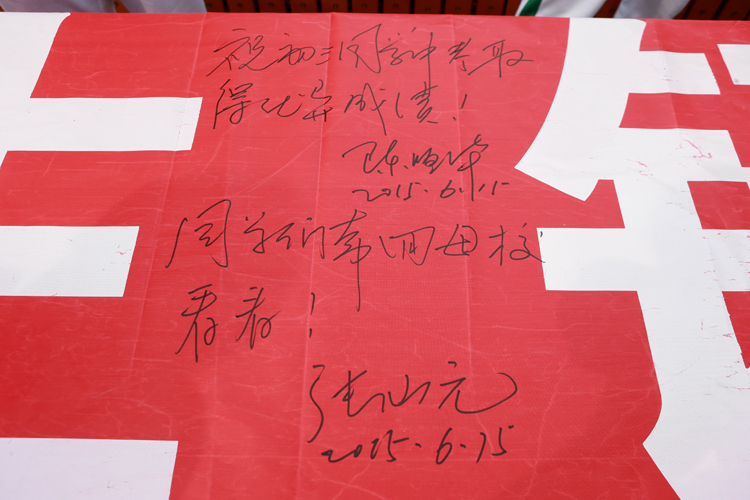 祝初三同学中考取
得优异成绩！
陈
2015.6.15
同学们常回母校
看看！
张山元
2015.6.15